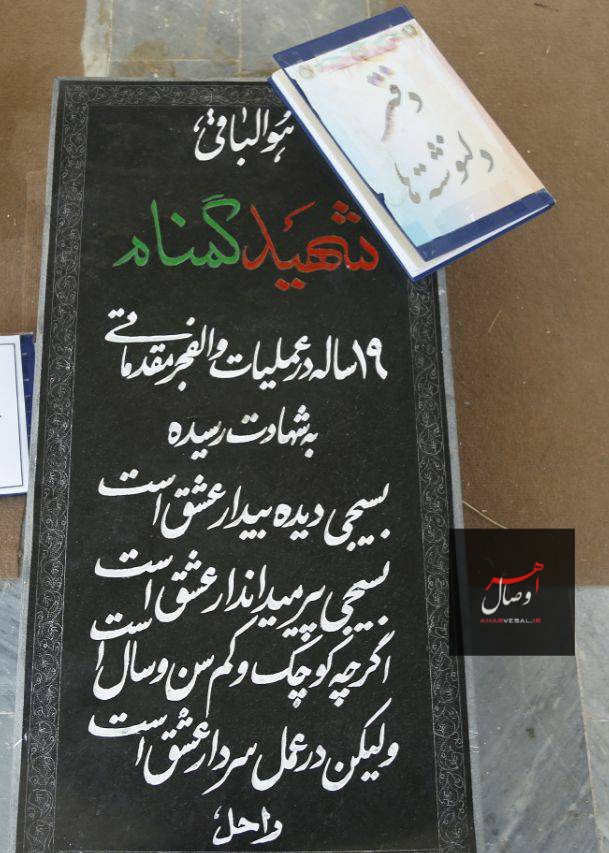 هوالباقی
شهید گمنام
۱۹ ساله در عملیات والفجر مقدماتی
به شهادت رسیده
بسیجی دیده بیدار عشق است
بسیجی پیر میداندار عشق است
اگرچه کوچک و کم سن و سال است
ولیکن در عمل سردار عشق است
راحل
دفتر
دلنوشته ها
اهر
وصال
AHARVESAL.IR